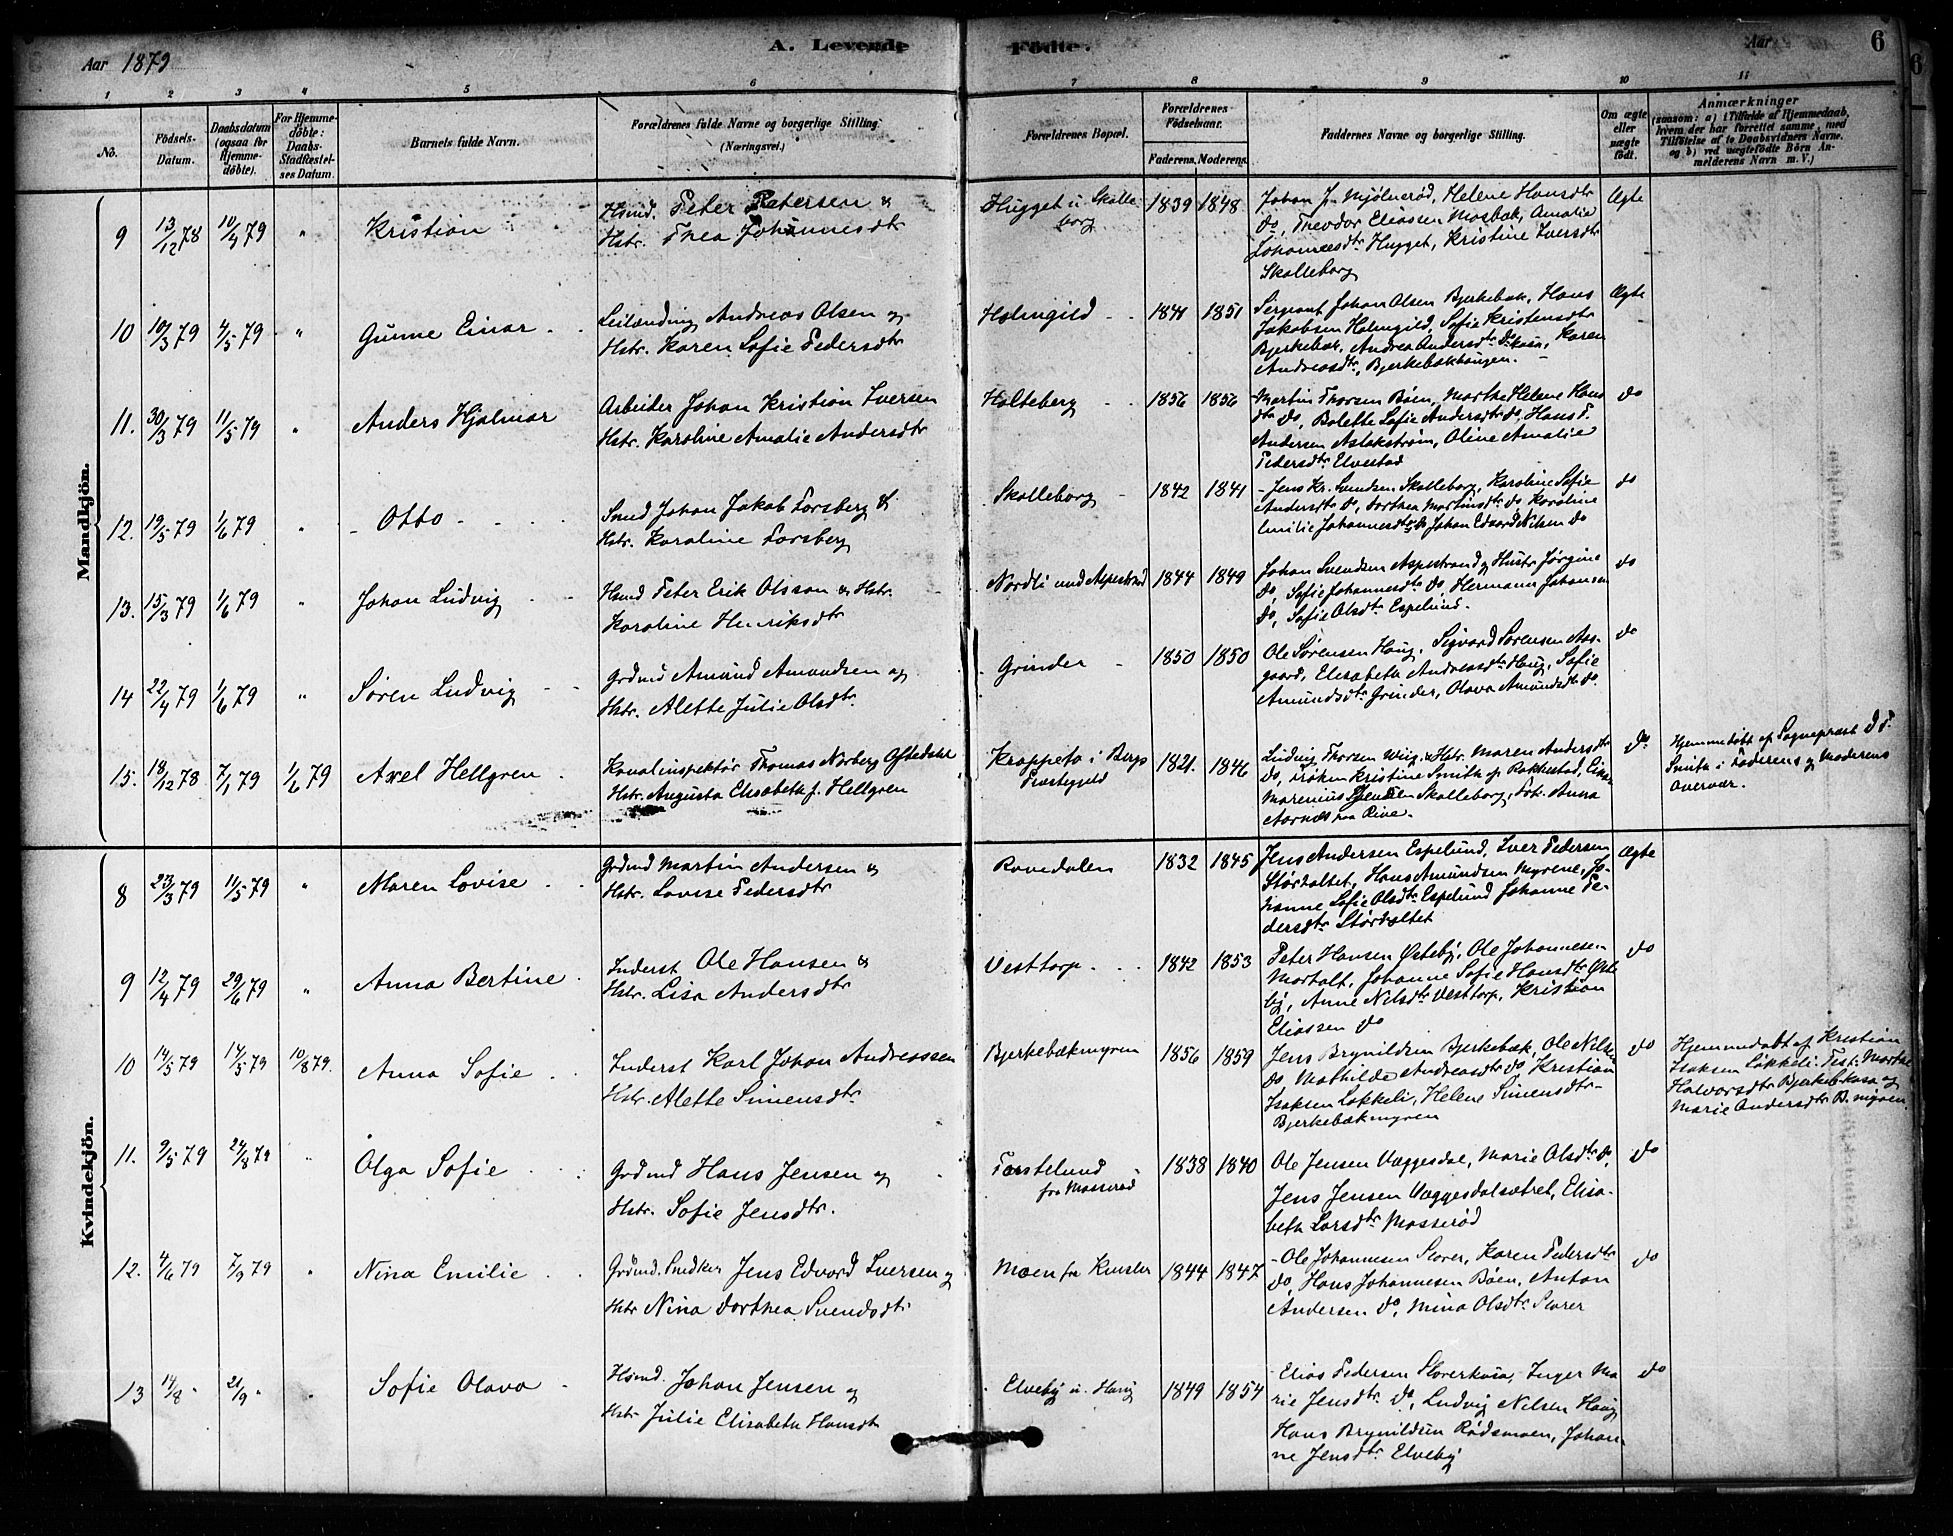 Aar 1879
A. Levende Födte.
Aar
6
1 2 3 4 5 6 7 8 9 10 11
No.
Födsels-Datum.
Daabsdatum (ogsaa for Hjemmedöbte).
For Hjemmedöbte: Daabs-Stadfæstelses Datum.
Barnets fulde Navn.
Forældrenes fulde Navne og borgerlige Stilling (Næringsvei.)
Forældrenes Bopæl.
Forældrenes Födselsaar.
Faderens. Moderens.
Faddernes Navne og borgerlige Stilling.
Om ægte eller uægte födt.
Anmærkninger
(saasom: a) i Tilfælde af Hjemmedaab, hvem der har forrettet samme, med Tilföielse af to Daabsvidners Navne. og b) ved uægtefödte Börn Anmelderens Navn m. V.)
Mandkjön.
9 13/12 78 10/4 79 " Kristian
Husmd. Peter Petersen &
Hstr. Thea Johannesdtr
Hugget u. Skolleborg 1839 1848
Johan J. Mjölnerød, Helene Hansdtr
do, Theodor Eliassen Mosbæk, Amalie
Johannesdtr Hugget, Kristine Iversdtr
Skolleborg
Ægte
10 10/3 79 4/5 79 " Gunne Einar
Leilænding Andreas Olsen og
Hstr. Karen Sofie Pedersdtr
Holmgild 1841 1851
Sergeant Johan Olsen Bjerkebæk, Hans
Jakobsen Holmgild, Sofie Kristensdtr
Bjerkebæk, Andrea Andersdtr Karen
Andreasdtr, Bjerkebækhaugen.
Ægte
11. 30/3 79 11/5 79 " Anders Hjalmar
Arbeider Johan Kristian Iversen
Hstr. Karoline Amalie Andersdtr
Holteberg 1856 1856
Martin Thorsen Bøen, Marthe Helene Hans
dtr do, Bolette Sofie Andersdtr do, Hans P.
Andersen Aslakstrøm, Oline Amalie
Pedersdtr Elvestad
do
12. 19/5 79 1/6 79 " Otto
Smed Johan Jakob Forsberg &
Hstr. Karoline Forsberg
Skolleborg 1842 1841
Jens Kr. Svendsen Skolleborg, Karoline Sofie
Andersdtr do, Dorthea Martinsdtr do Karoline
Emilie Johannesdtr do Johan Edvard Nilsen do
do
13. 15/3 79 1/6 79 " Johan Ludvig
Husmd Peter Erik Olsson & Hstr.
Karoline Henriksdtr
Nordli und Aspestrand 1844 1849
Johan Svendsen Aspestrand og Hustr Jørgine
do, Sofie Johannesdtr do, Hermann Johansen
do, Sofie Olsdtr Espelund.
do
14 22/4 79 1/6 79 " Søren Ludvig
Grdmd Amund Amundsen og
Hstr. Alette Julie Olsdtr.
Grinder 1850 1850
Ole Sørensen Haug, Sigvard Sørensen Aas-
gaard, Elisabeth Andreasdtr Haug, Sofie
Amundsdtr Grinder, Olava Amundsdtr do
do
15. 18/12 78 7/1 79 1/6 79 Axel Hellgren
Kanalinspektør Thomas Norberg Oftedahl
Hstr. Augusta Elisabeth f. Hellgren
Krappeto i Bergs
Præstegjeld 1821. 1846
Ludvig Thorsen Wiig, & Hstr. Maren Andersdtr
do, Frøken Kristine Smith af Rakkestad, Einar
Marenius Jensen Skolleborg, Frk. Anna
Aarnæs paa Rive.
do
Hjemmedøbt af Sogneprest D F.
Smith i Faderens og Moderens
Overvær.
Kvindekjön.
8 23/3 79 11/5 79 " Maren Lovise
Grdmd Martin Andersen &
Hstr. Lovise Pedersdtr
Ravedalen 1832 1845
Jens Andersen Espelund, Iver Pedersen
Størtaltet, Hans Amundsen Myrene, Jo-
hanne Sofie Olsdtr Espelund Johanne Pe-
dersdtr Størtaltet
Ægte
9 12/4 79 29/6 79 " Anna Bertine
Inderst Ole Hansen &
Hstr. Lisa Andersdtr
Vesttorp 1842 1853
Peter Hansen Østeby, Ole Johannesen
Mortalt, Johanne Sofie Hansdtr Øste
by, Anne Nilsdtr Vesttorp, Kristian
Eliassen do
do
10 14/5 79 14/5 79 10/8 79. Anna Sofie
Inderst Karl Johan Andreassen
Hstr. Alette Simensdtr
Bjerkebækmyren 1856 1859
Jens Brynildsen Bjerkebæk, Ole Nilsen
do Mathilde Andreasdtr do Kristian
Isaksen Løkkeli, Helene Simensdtr
Bjerkebækmyren
do
Hjemmedøbt af Kristian
Isaksen Løkkeli. Test: Marthe
Halvorsdtr Bjerkebkasa og
Marie Andersdtr B. myren
11. 9/5 79 24/8 79 " Olga Sofie
Grdmd Hans Jensen og
Hstr. Sofie Jensdtr.
Furstelund
fra Mosserød 1838 1840
Ole Jensen Væggesdal, Marie Olsdtr do,
Jens Jensen Væggesdalsætret, Elisa-
beth Larsdtr Mosserød
do
12. 4/6 79 7/9 79 " Nina Emilie
Grdmd. Snedker Jens Edvard Iversen og
Hstr Nina Dorthea Svendsdtr
Moen fra 1844 1847
Ole Johannesen Slorer, Karen Pedersdtr
do, Hans Johannesen Bøen, Anton
Andersen do, Mina Olsdtr Slorer
do
13 14/8 " 21/9 " " Sofie Olava
Husmd. Johan Jensen og
Hstr Julie Elisabeth Hansdtr
Elveby u. Haug 1849 1854
Elias Pedersen Slorerkasa, Inger Ma
rie Jensdtr do, Ludvig Nilsen Haug
Hans Brynildsen Rødsmoen, Johan-
ne Jensdtr Elveby
do